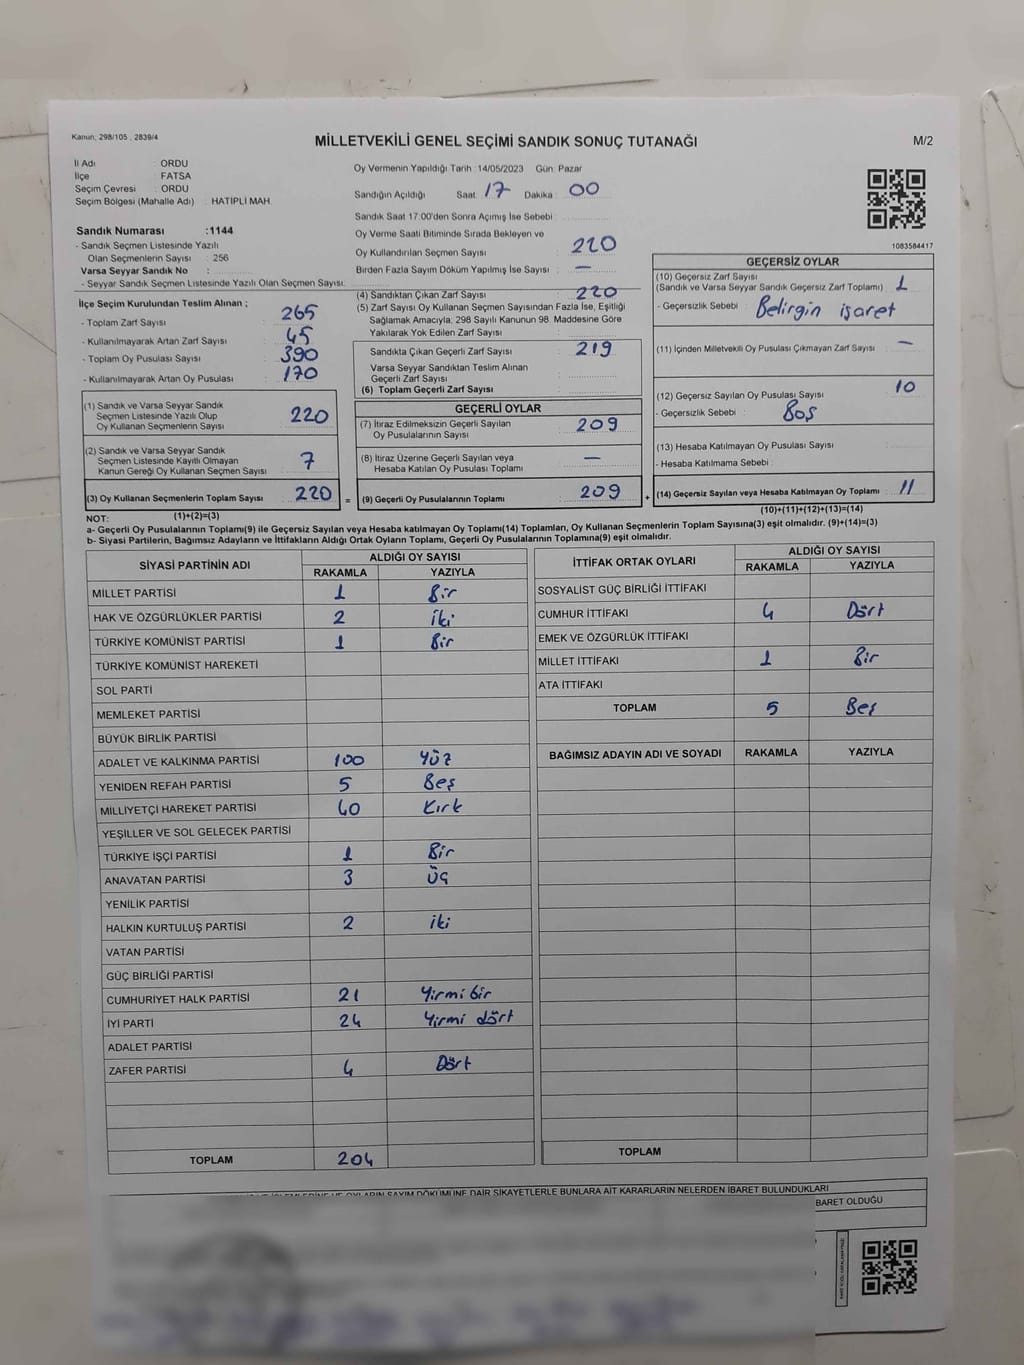 Kanun; 298/105 , 2839/4
MİLLETVEKİLİ GENEL SEÇİMİ SANDIK SONUÇ TUTANAĞI
M/2
İl Adı : ORDU
İlçe : FATSA
Seçim Çevresi : ORDU
Seçim Bölgesi (Mahalle Adı) : HATIPLİ MAH.
Sandık Numarası :1144
- Sandık Seçmen Listesinde Yazılı
Olan Seçmenlerin Sayısı : 256
Varsa Seyyar Sandık No :
- Seyyar Sandık Seçmen Listesinde Yazılı Olan Seçmen Sayısı:
Oy Vermenin Yapıldığı Tarih :14/05/2023 Gün: Pazar
Sandığın Açıldığı Saat: 17 Dakika : 00
Sandık Saat 17:00'den Sonra Açımış İse Sebebi :
Oy Verme Saati Bitiminde Sırada Bekleyen ve
Oy Kullandırılan Seçmen Sayısı : 220
Birden Fazla Sayım Döküm Yapılmış İse Sayısı : —
1083584417
İlçe Seçim Kurulundan Teslim Alınan ;
- Toplam Zarf Sayısı : 265
- Kullanılmayarak Artan Zarf Sayısı : 45
- Toplam Oy Pusulası Sayısı : 390
- Kullanılmayarak Artan Oy Pusulası : 170
(1) Sandık ve Varsa Seyyar Sandık
Seçmen Listesinde Yazılı Olup
Oy Kullanan Seçmenlerin Sayısı : 220
(2) Sandık ve Varsa Seyyar Sandık
Seçmen Listesinde Kayıtlı Olmayan
Kanun Gereği Oy Kullanan Seçmen Sayısı : 7
(3) Oy Kullanan Seçmenlerin Toplam Sayısı : 220 =
(1)+(2)=(3)
(4) Sandıktan Çıkan Zarf Sayısı : 220
(5) Zarf Sayısı Oy Kullanan Seçmen Sayısından Fazla İse, Eşitliği
Sağlamak Amacıyla, 298 Sayılı Kanunun 98. Maddesine Göre
Yakılarak Yok Edilen Zarf Sayısı :
Sandıkta Çıkan Geçerli Zarf Sayısı : 219
Varsa Seyyar Sandıktan Teslim Alınan
Geçerli Zarf Sayısı :
(6) Toplam Geçerli Zarf Sayısı :
GEÇERLİ OYLAR
(7) İtiraz Edilmeksizin Geçerli Sayılan
Oy Pusulalarının Sayısı : 209
(8) İtiraz Üzerine Geçerli Sayılan veya
Hesaba Katılan Oy Pusulası Toplamı : —
(9) Geçerli Oy Pusulalarının Toplamı : 209 +
GEÇERSİZ OYLAR
(10) Geçersiz Zarf Sayısı
(Sandık ve Varsa Seyyar Sandık Geçersiz Zarf Toplamı) : 1
- Geçersizlik Sebebi : Belirgin işaret
(11) İçinden Milletvekili Oy Pusulası Çıkmayan Zarf Sayısı : —
(12) Geçersiz Sayılan Oy Pusulası Sayısı : 10
- Geçersizlik Sebebi : Boş
(13) Hesaba Katılmayan Oy Pusulası Sayısı :
- Hesaba Katılmama Sebebi :
(14) Geçersiz Sayılan veya Hesaba Katılmayan Oy Toplamı : 11
(10)+(11)+(12)+(13)=(14)
NOT:
a- Geçerli Oy Pusulalarının Toplamı(9) ile Geçersiz Sayılan veya Hesaba katılmayan Oy Toplamı(14) Toplamları, Oy Kullanan Seçmenlerin Toplam Sayısına(3) eşit olmalıdır. (9)+(14)=(3)
b- Siyasi Partilerin, Bağımsız Adayların ve İttifakların Aldığı Ortak Oyların Toplamı, Geçerli Oy Pusulalarının Toplamına(9) eşit olmalıdır.
SİYASİ PARTİNİN ADI ALDIĞI OY SAYISI
RAKAMLA YAZIYLA
MİLLET PARTİSİ 1 Bir
HAK VE ÖZGÜRLÜKLER PARTİSİ 2 İki
TÜRKİYE KOMÜNİST PARTİSİ 1 Bir
TÜRKİYE KOMÜNİST HAREKETİ
SOL PARTİ
MEMLEKET PARTİSİ
BÜYÜK BİRLİK PARTİSİ
ADALET VE KALKINMA PARTİSİ 100 Yüz
YENİDEN REFAH PARTİSİ 5 Beş
MİLLİYETÇİ HAREKET PARTİSİ 40 Kırk
YEŞİLLER VE SOL GELECEK PARTİSİ
TÜRKİYE İŞÇİ PARTİSİ 1 Bir
ANAVATAN PARTİSİ 3 Üç
YENİLİK PARTİSİ
HALKIN KURTULUŞ PARTİSİ 2 iki
VATAN PARTİSİ
GÜÇ BİRLİĞİ PARTİSİ
CUMHURİYET HALK PARTİSİ 21 Yirmi bir
İYİ PARTİ 24 Yirmi dört
ADALET PARTİSİ
ZAFER PARTİSİ 4 Dört
TOPLAM 204
İTTİFAK ORTAK OYLARI ALDIĞI OY SAYISI
RAKAMLA YAZIYLA
SOSYALİST GÜÇ BİRLİĞİ İTTİFAKI
CUMHUR İTTİFAKI 4 Dört
EMEK VE ÖZGÜRLÜK İTTİFAKI
MİLLET İTTİFAKI 1 Bir
ATA İTTİFAKI
TOPLAM 5 Beş
BAĞIMSIZ ADAYIN ADI VE SOYADI RAKAMLA YAZIYLA
TOPLAM
SAYIM DÖKÜMÜNE DAİR ŞİKAYETLERLE BUNLARA AİT KARARLARIN NELERDEN İBARET BULUNDUKLARI
BARET OLDUĞU